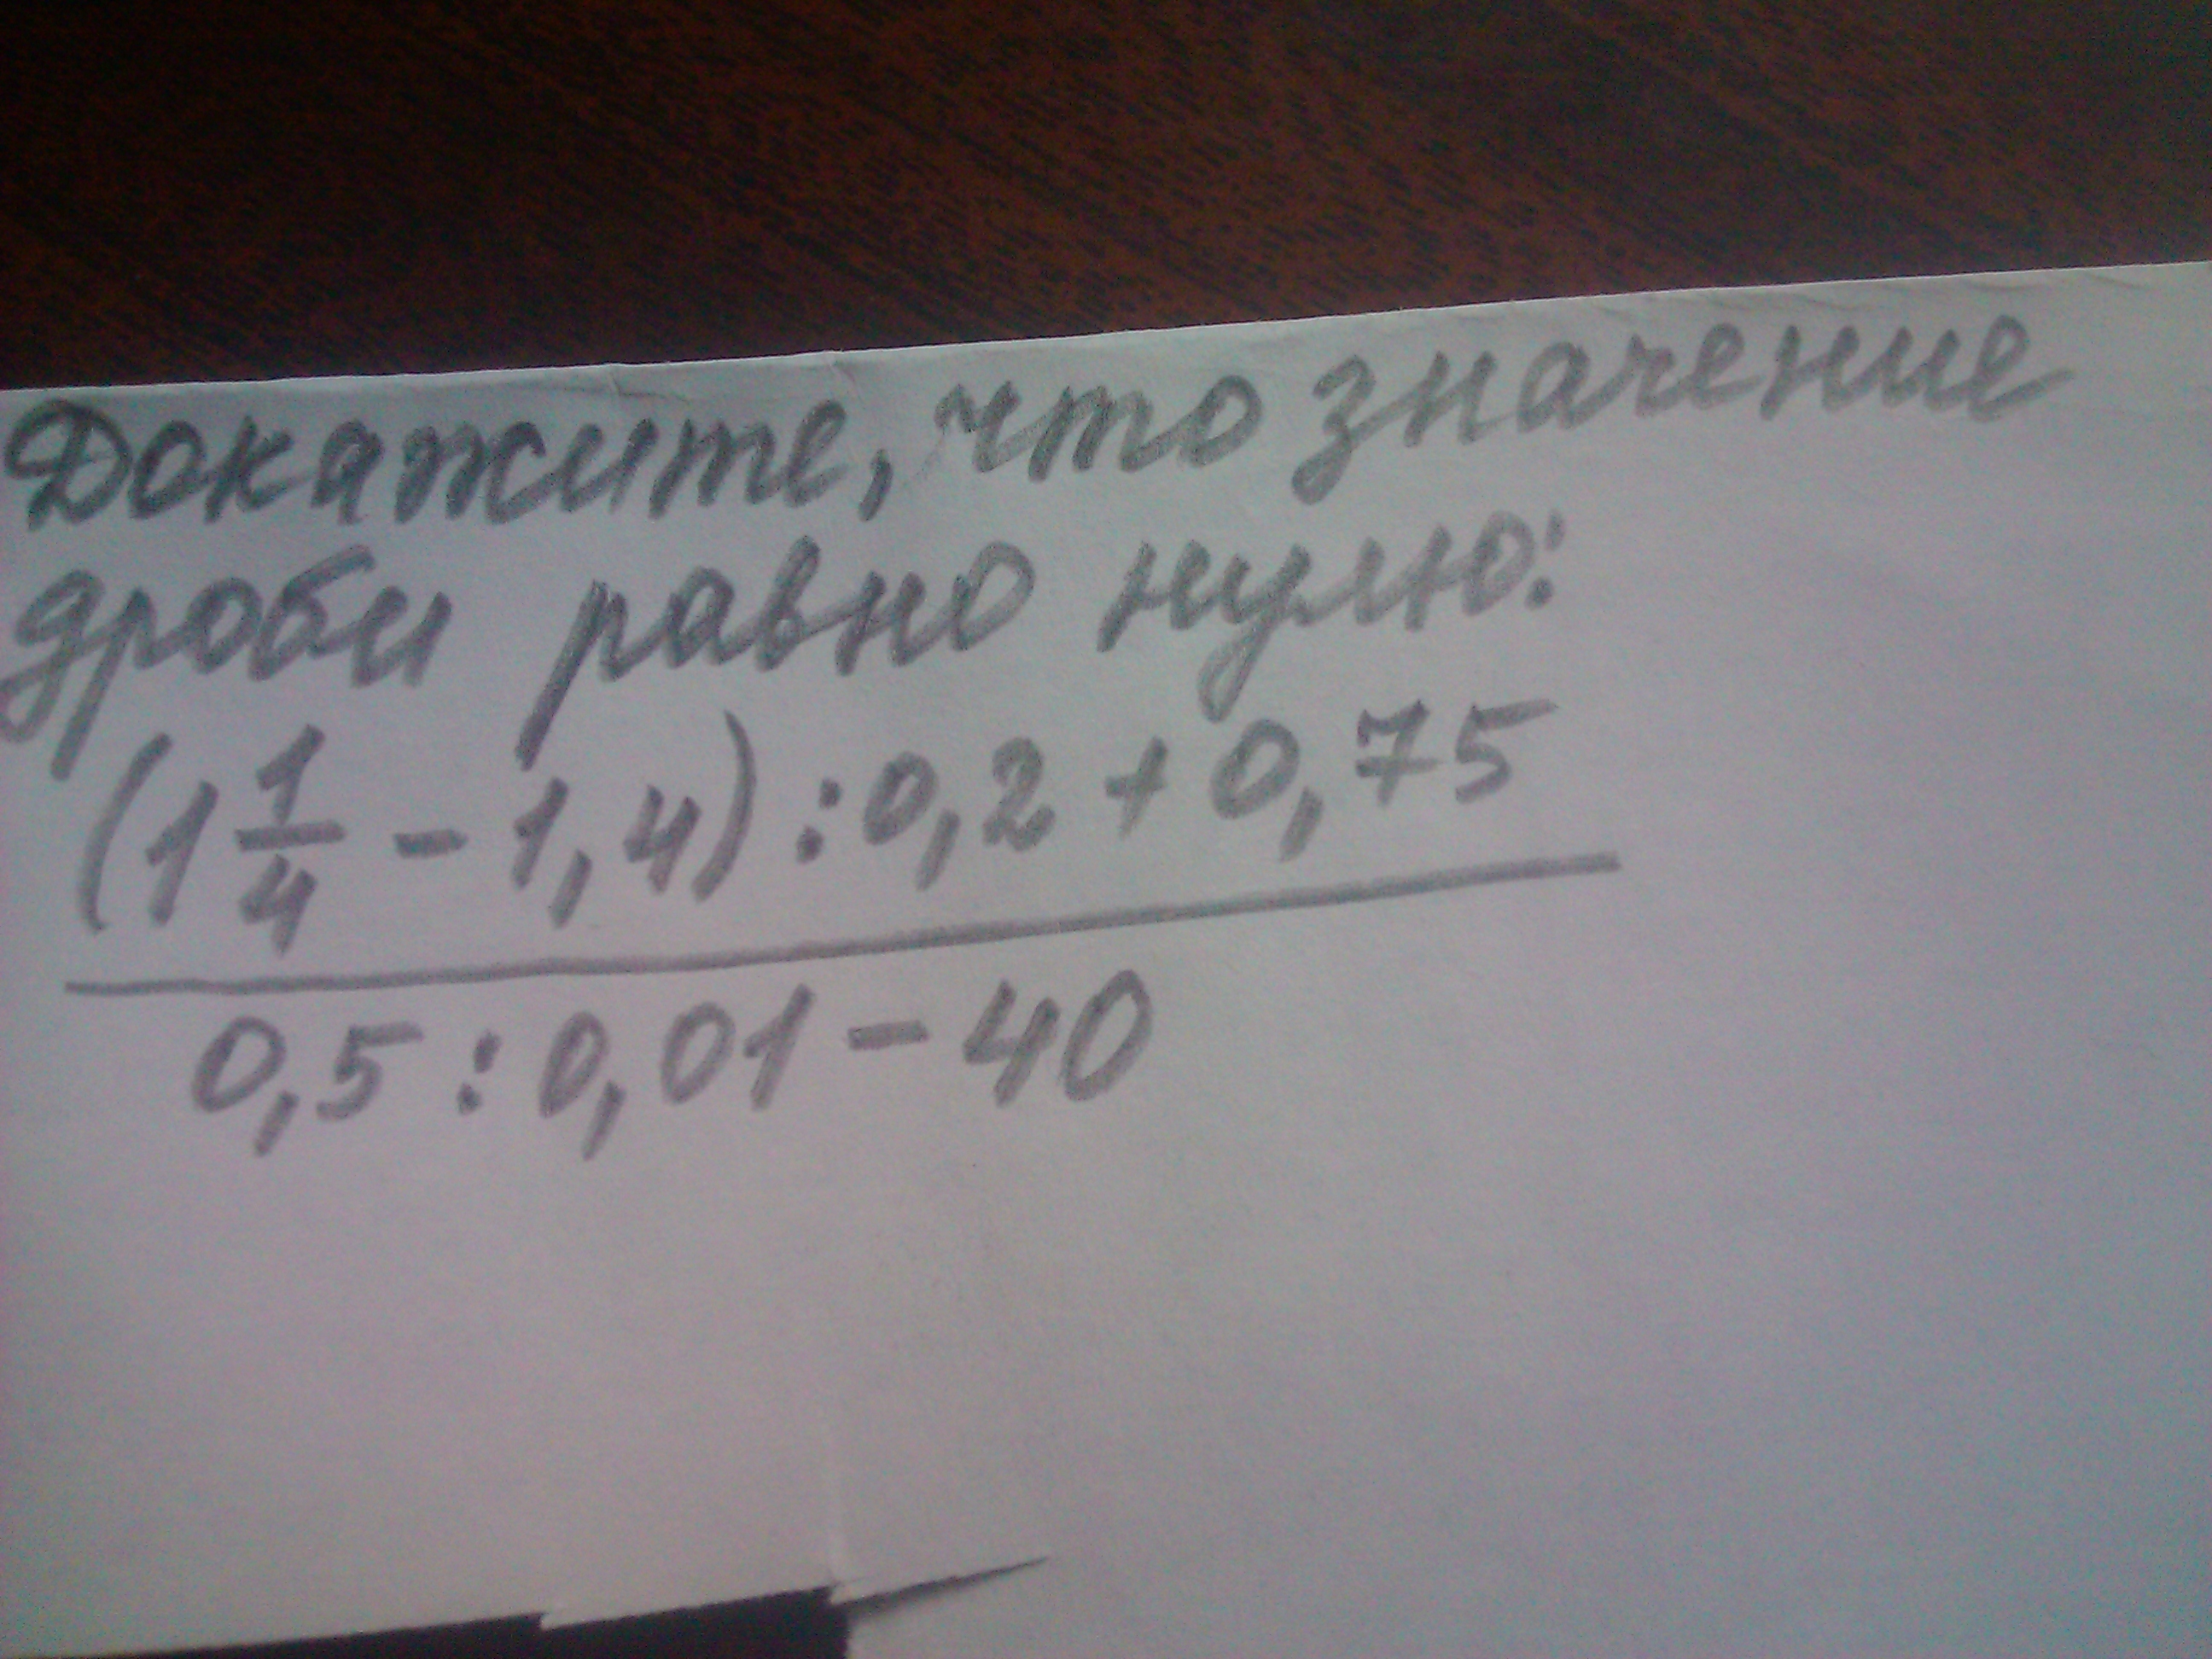 Докажите, что значение
дроби равно нулю:
(1 1/4 - 1,4) : 0,2 + 0,75
0,5 : 0,01 - 40